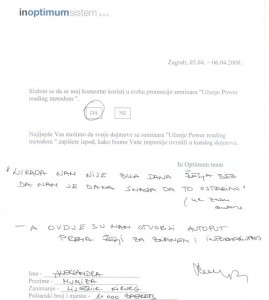 inoptimumsistem d.o.o.
Zagreb, 05.04. – 06.04.2008.
Slažem se da se moj komentar koristi u svrhu promocije seminara "Učenje Power
reading metodom".
DA
NE
Najljepše Vas molimo da svoje dojmove sa seminara "Učenje Power reading
metodom" zapišete ispod, kako bismo Vaše impresije uvrstili u katalog dojmova.
In Optimum team
"NIKADA NAM NIJE BILA DANA ŽELJA BEZ
DA NAM JE DANA SNAGA DA TO OSTVARIMO"
— A OVDJE SU NAM OTVORILI AUTOPUT
PREMA ŽELJI ZA ZNANJEM I INFORMACIJAMA
Ime: ALEKSANDRA
Prezime:
Zanimanje:
Poštanski broj i mjesto: 10 000 ZAGREB